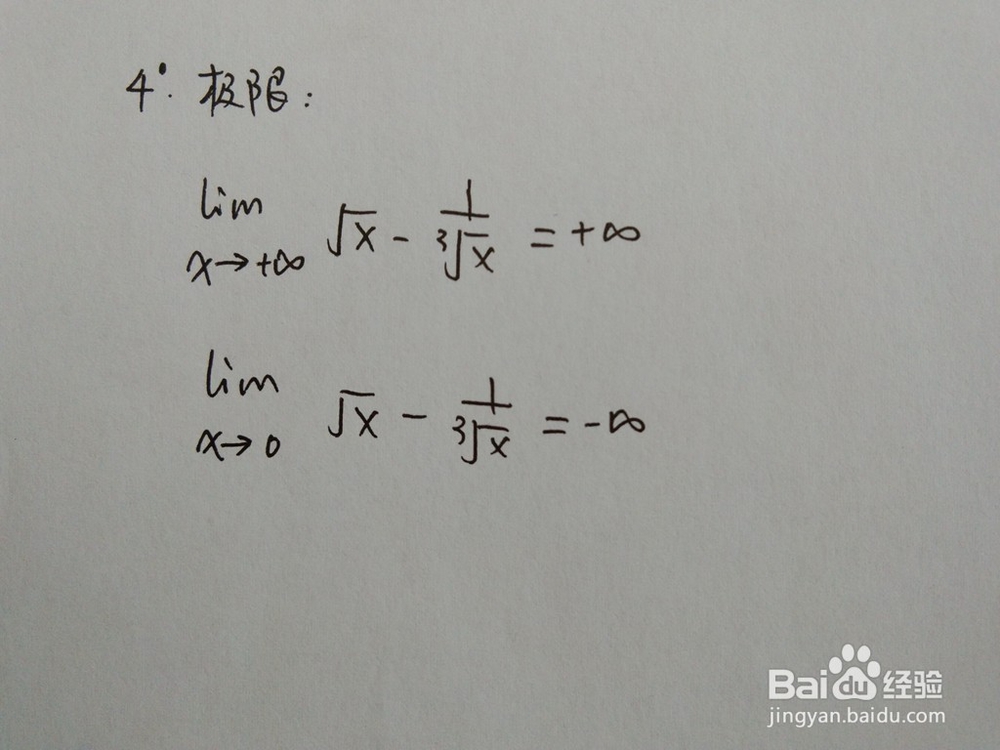 4°. 极限:
lim x→+∞ √x - 1/∛x = +∞
lim x→0 √x - 1/∛x = -∞
Baidu 经验
jingyan.baidu.com